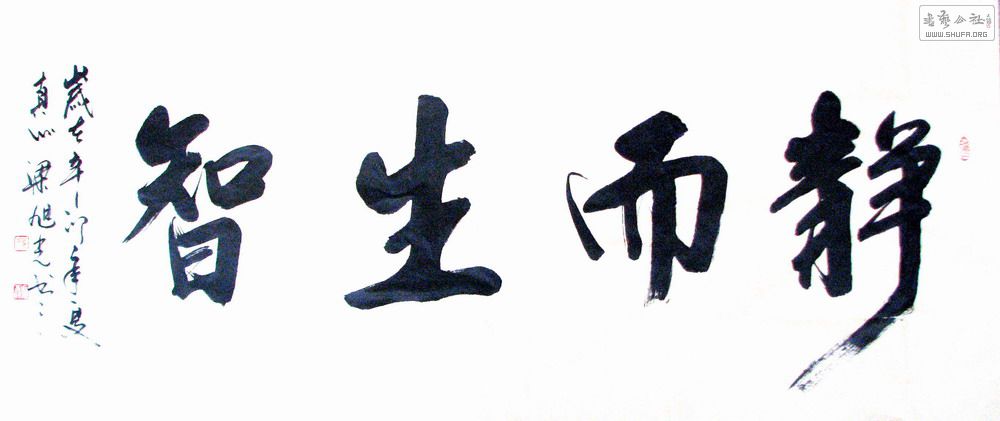 静而生智
歲在辛卯年夏
真州梁旭光书
书艺公社
WWW.SHUFA.ORG